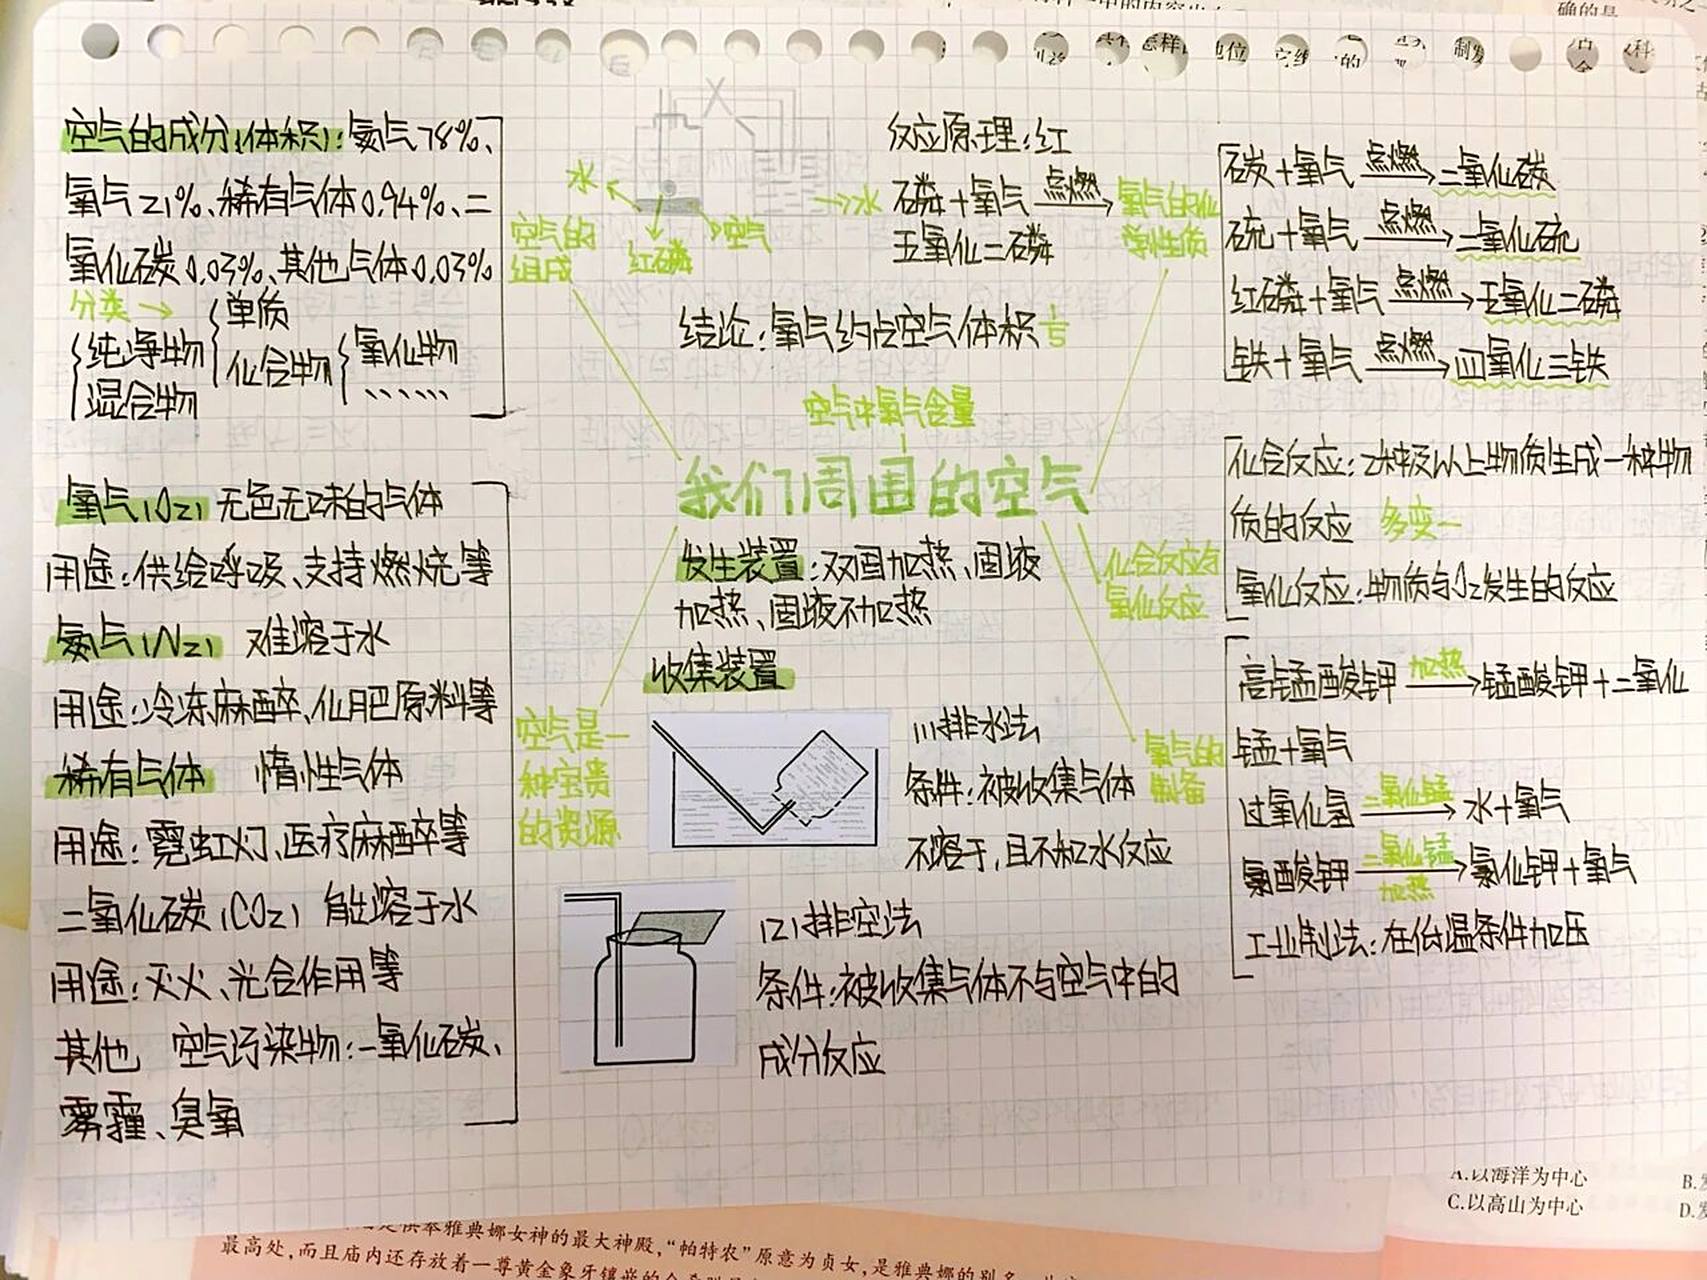 空气的成分(体积):氮气78%、
氧气21%、稀有气体0.94%、二
氧化碳0.03%、其他气体0.03%
分类→
纯净物
混合物
单质
化合物
氧化物
……
氧气(O2) 无色无味的气体
用途:供给呼吸、支持燃烧等
氮气(N2) 难溶于水
用途:冷冻麻醉、化肥原料等
稀有气体 惰性气体
用途:霓虹灯、医疗麻醉等
二氧化碳(CO2) 能溶于水
用途:灭火、光合作用等
其他 空气污染物:一氧化碳、
雾霾、臭氧
空气的
组成
水
红磷
空气
→水
反应原理:红
磷+氧气 点燃→
五氧化二磷
结论:氧气约占空气体积
空气中氧气含量
我们周围的空气
发生装置:双固加热、固液
加热、固液不加热
收集装置
空气是一
种宝贵
的资源
(1)排水法
条件:被收集气体
不溶于,且不和水反应
(2)排空法
条件:被收集气体不与空气中的
成分反应
氧气的化
学性质
石炭+氧气 点燃→二氧化碳
硫+氧气 点燃→二氧化硫
红磷+氧气 点燃→五氧化二磷
铁+氧气 点燃→四氧化三铁
化合反应与
氧化反应
化合反应:2种及以上物质生成一种物
质的反应 多变一
氧化反应:物质与O2发生的反应
氧气的
制备
高锰酸钾 加热→锰酸钾+二氧化
锰+氧气
过氧化氢 二氧化锰→水+氧气
氯酸钾 二氧化锰 加热→氯化钾+氧气
工业制法:在低温条件加压
确的是
A.以海洋为中心
C.以高山为中心
供奉雅典娜女神的最大神殿,“帕特农”原意为贞女,是雅典娜的别名
最高处,而且庙内还存放着一尊黄金象牙镶嵌的